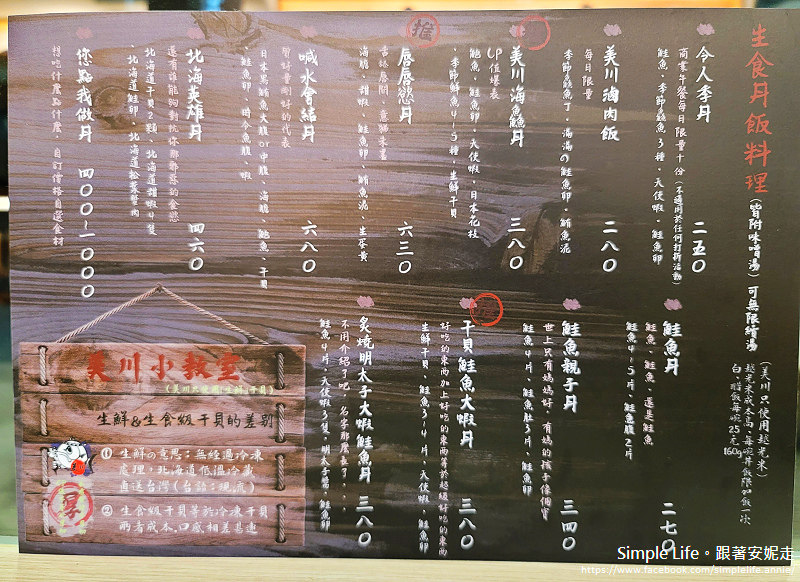 生食丼飯料理(皆附味噌湯)可無限續湯
(美川只使用越光米)
越光米成本高、每碗丼飯限加飯一次
白、醋飯每碗25元160g
今人季丼 二五0
商業午餐每日限量十份(不適用於任何打折活動)
鮭魚、季節魚3種、天使蝦、鮭魚卵
美川滷肉飯 二八0
每日限量
季節魚丁、滿滿の鮭魚卵、鮪魚泥
美川海鱻丼 三八0
CP值爆表
鮭魚、魽魚、鮭魚卵、天使蝦、日本花枝
、季節鮮魚4-5種、生鮮干貝
唇唇慾丼 六三0
舌舔唇間、意猶未盡
海膽、甜蝦、鮭魚卵、鮪魚泥、生蛋黃
喊水會結丼 六八0
腎好量剛好的代表
日本黑鮪魚大腹or中腹、海膽、魽魚、干貝
、鮭魚卵、時令魚腹、蝦
北海英雄丼 四六0
還有誰能夠對抗你那邪惡的食慾
北海道干貝2顆、北海道甜蝦4隻
、北海道鮭卵、北海道松葉蟹肉
你點我做丼 四00~一000
想吃什麼點什麼,自訂價格自選食材
鮭魚丼 二七0
鮭魚、鮭魚、還是鮭魚
鮭魚4-5片、鮭魚腹2片
鮭魚親子丼 三四0
世上只有媽媽好、有媽的孩子像個寶
鮭魚4片、鮭魚肚3片、鮭魚卵
干貝鮭魚大蝦丼 三八0
好吃的東西加上好吃的東西等於超級好吃的東西
生鮮干貝、鮭魚3-4片、天使蝦、鮭魚卵
炙燒明太子大蝦鮭魚丼 三八0
不用介紹了吧,名字那麼長了...
鮭魚4片、天使蝦3隻、明太子醬、鮭魚卵
推
美川小教室
(美川只使用生鮮干貝)
生鮮&生食級干貝的差別
① 生鮮の意思:無經過冷凍
處理,北海道低溫冷藏
直送台灣(台語:現流)
② 生食級干貝等於冷凍干貝
兩者成本、口感相差甚遠
Simple Life。跟著安妮走
https://www.facebook.com/simplelife.annie/